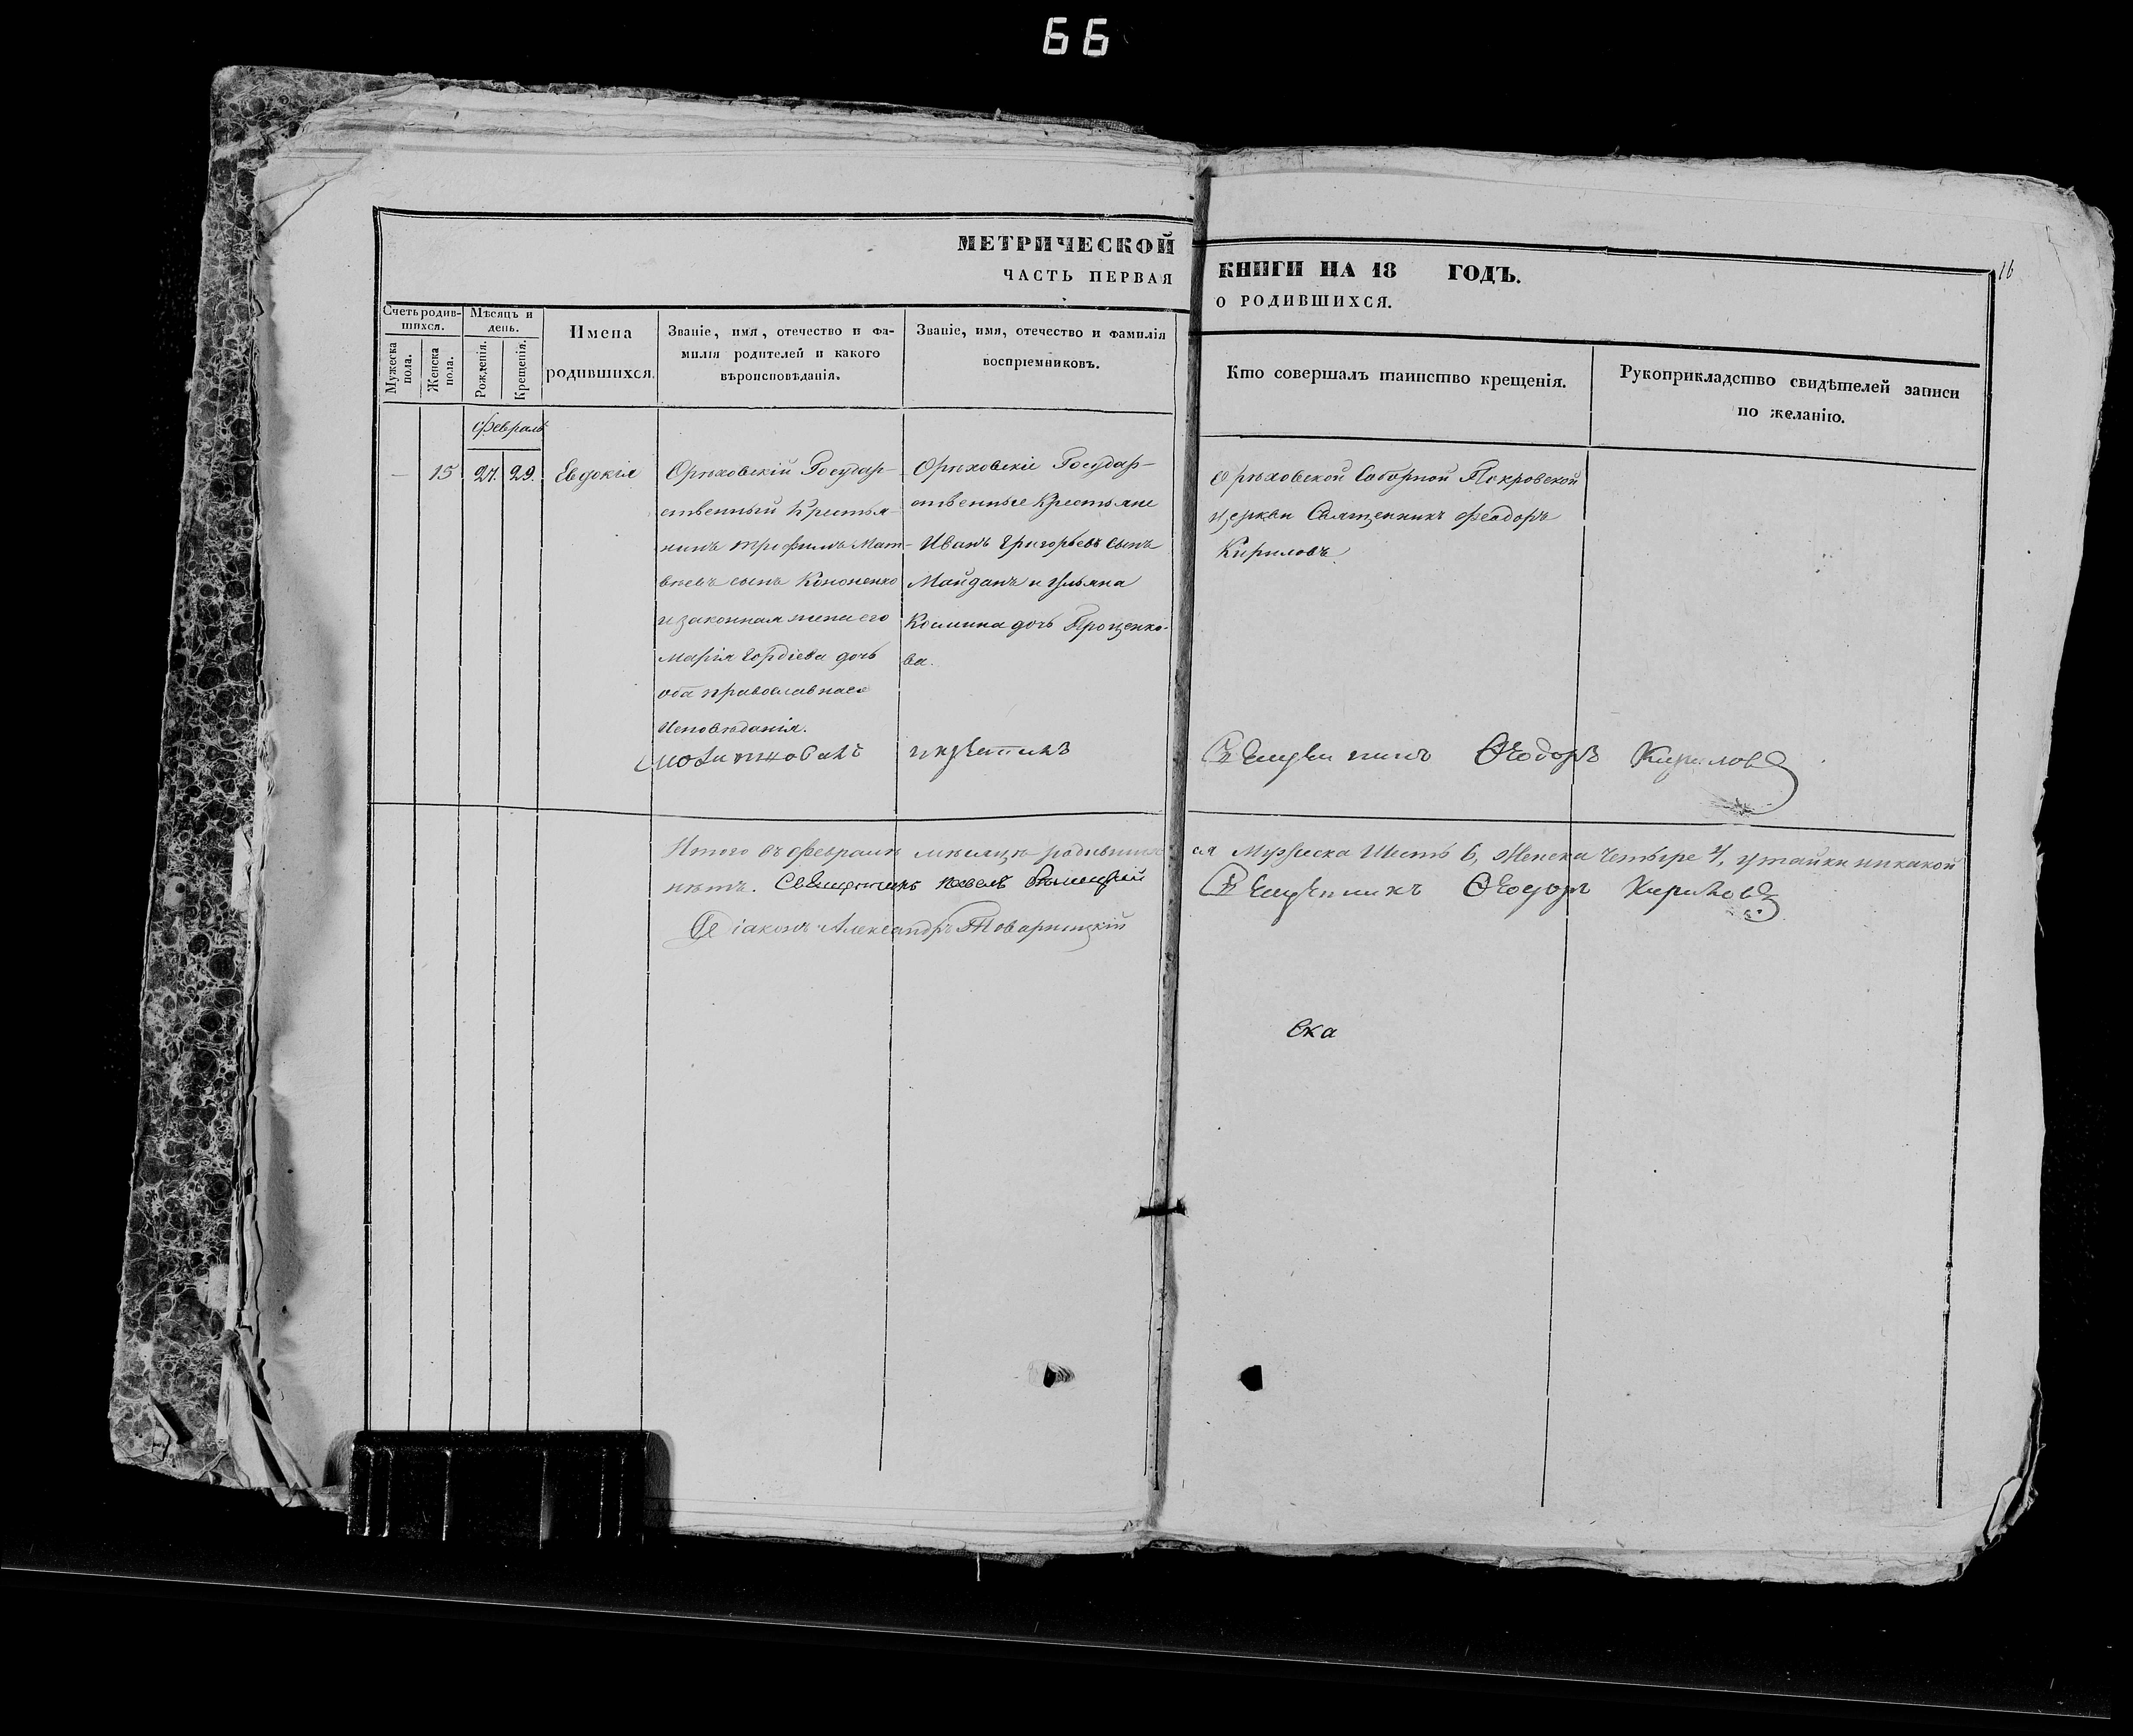 66
МЕТРИЧЕСКОЙ
ЧАСТЬ ПЕРВАЯ
КНИГИ НА 18 ГОДЪ.
О РОДИВШИХСЯ.
16
Счетъ родив-
шихся.
Мужеска
пола.
Женска
пола.
Мѣсяцъ и
день.
Рожденія.
Крещенія.
Имена
родившихся.
Званіе, имя, отечество и фа-
милія родителей и какого
вѣроисповѣданія.
Званіе, имя, отечество и фамилія
воспріемниковъ.
Кто совершалъ таинство крещенія.
Рукоприкладство свидѣтелей записи
по желанію.
Февраль
— 15 27. 29. Евдокія
Орѣховскій Государ-
ственный Крестья
нинъ Трофимъ Мат-
вѣевъ сынъ Кононенко
и законная жена его
Марія Гордіева дочь
оба православнаго
Исповѣданія.
Орѣховскіе Государ-
ственные Крестьяне
Иванъ Григорьевъ сынъ
Майданъ и Ульяна
Козмина дочь Проценко-
ва.
Орѣховской Соборной Покровской
церкви Священникъ Феодоръ
Кириловъ.
молитвовалъ и крестилъ Священникъ Ѳеодоръ Кириловъ
Итого въ Февралѣ мѣсяцѣ родивших
ся Мужеска Шесть 6, Женска Четыре 4, утайки никакой
нѣтъ. Священникъ Павелъ
Священникъ Ѳеодоръ Кириловъ
Діаконъ Александръ Товаринскій
ска